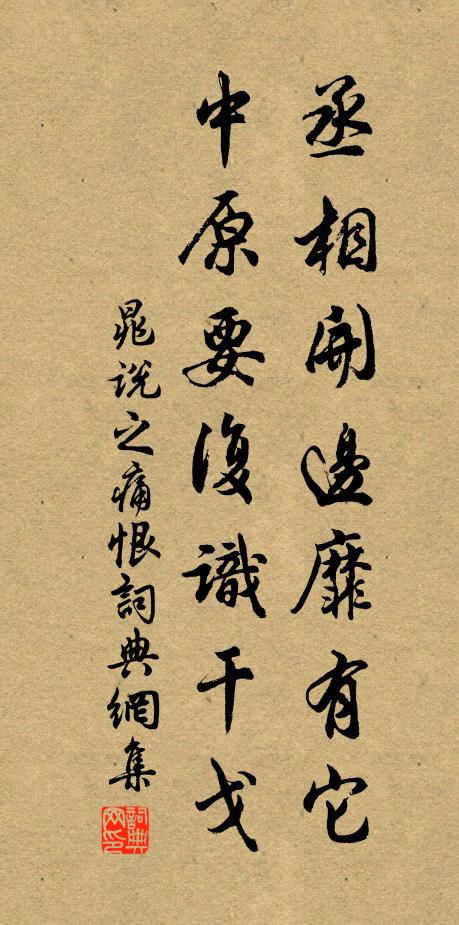 丞相開邊靡有它
中原要復識干戈
晁說之痛恨詞典網集
詞典网印